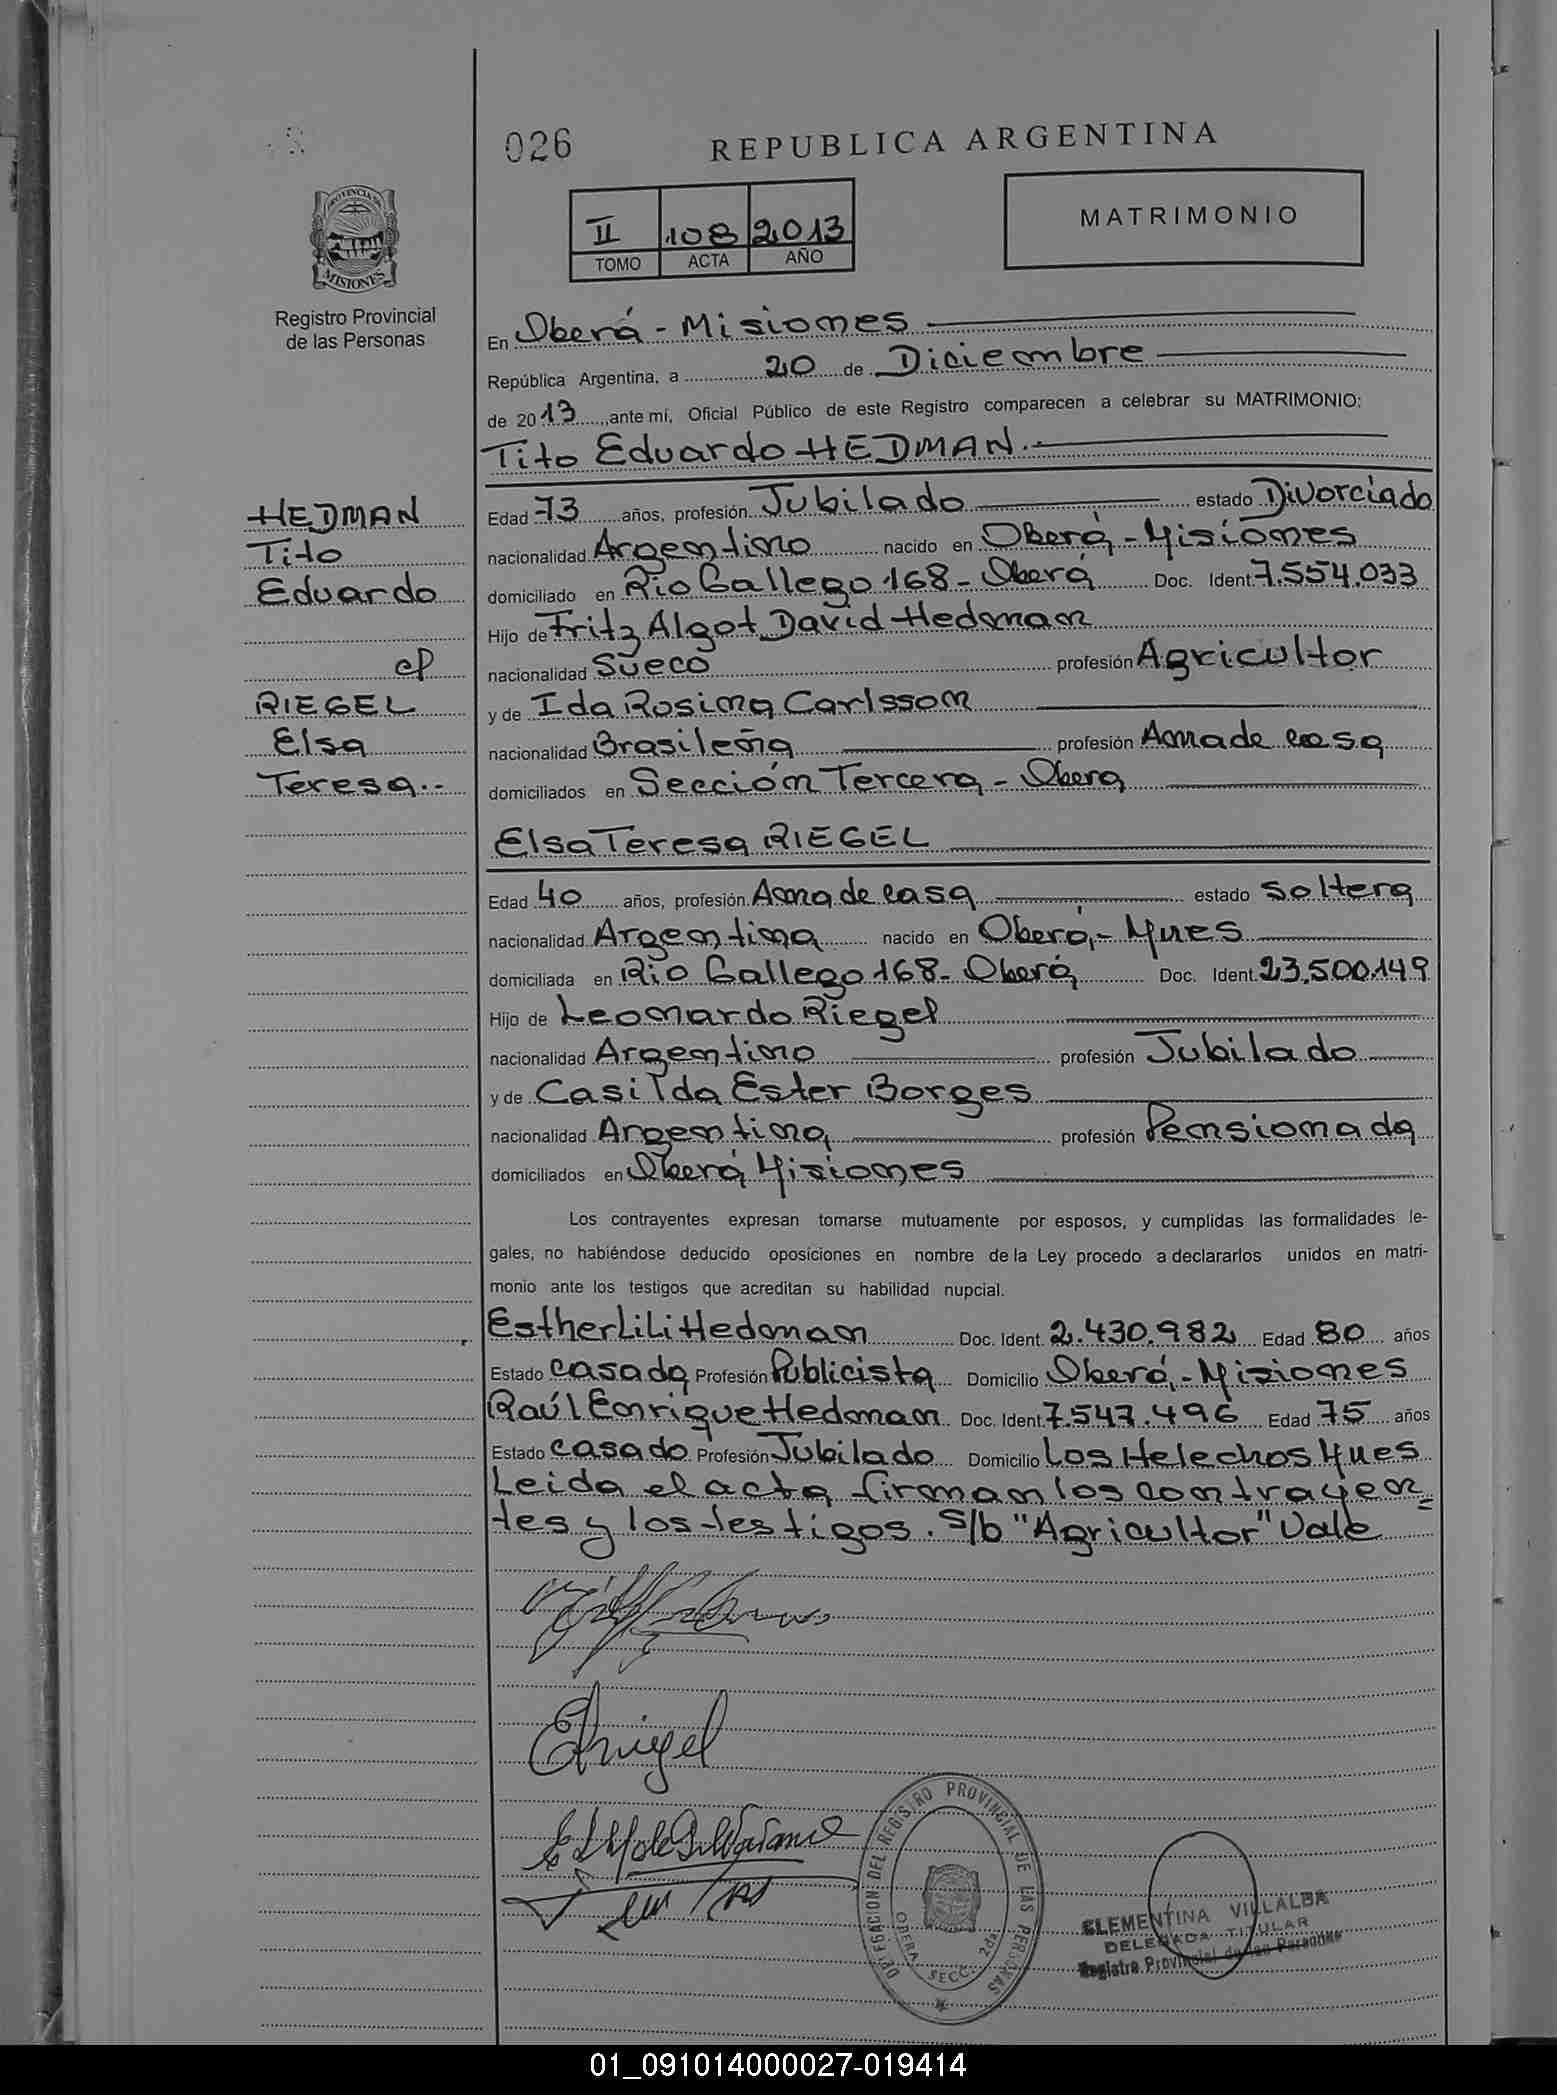 026
REPUBLICA ARGENTINA
PROVINCIA DE
MISIONES
Registro Provincial
de las Personas
II 108 2013
TOMO ACTA AÑO
MATRIMONIO
En Oberá - Misiones
República Argentina, a 20 de Diciembre
de 2013, ante mí, Oficial Público de este Registro comparecen a celebrar su MATRIMONIO:
Tito Eduardo HEDMAN.-
HEDMAN
Tito
Eduardo
c/
RIEGEL
Elsa
Teresa.-
Edad 73 años, profesión Jubilado estado Divorciado
nacionalidad Argentino nacido en Oberá - Misiones
domiciliado en Rio Gallego 168 - Oberá Doc. Ident. 7.554.033
Hijo de Fritz Algot David Hedman
nacionalidad Sueco profesión Agricultor
y de Ida Rosina Carlsson
nacionalidad Brasileña profesión Ama de casa
domiciliados en Sección Tercera - Obera
Elsa Teresa RIEGEL
Edad 40 años, profesión Ama de casa estado soltera
nacionalidad Argentina nacido en Oberá - Mnes
domiciliada en Rio Gallego 168 - Oberá Doc. Ident. 23.500.149
Hijo de Leonardo Riegel
nacionalidad Argentino profesión Jubilado
y de Casilda Ester Borges
nacionalidad Argentina profesión Pensionada
domiciliados en Oberá Misiones
Los contrayentes expresan tomarse mutuamente por esposos, y cumplidas las formalidades le-
gales, no habiéndose deducido oposiciones en nombre de la Ley procedo a declararlos unidos en matri-
monio ante los testigos que acreditan su habilidad nupcial.
Esther Lili Hedman Doc. Ident. 2.430.982 Edad 80 años
Estado casada Profesión Publicista Domicilio Oberá - Misiones
Raúl Enrique Hedman Doc. Ident. 7.547.496 Edad 75 años
Estado casado Profesión Jubilado Domicilio Los Helechos Mnes
Leida el acta firman los contrayen-
tes y los testigos. s/b "Agricultor" Vale
ERiegel
DELEGACION DEL REGISTRO PROVINCIAL DE LAS PERSONAS
OBERA SECC. 2da
CLEMENTINA VILLALBA
DELEGADA TITULAR
Registro Provincial de las Personas
01_091014000027-019414